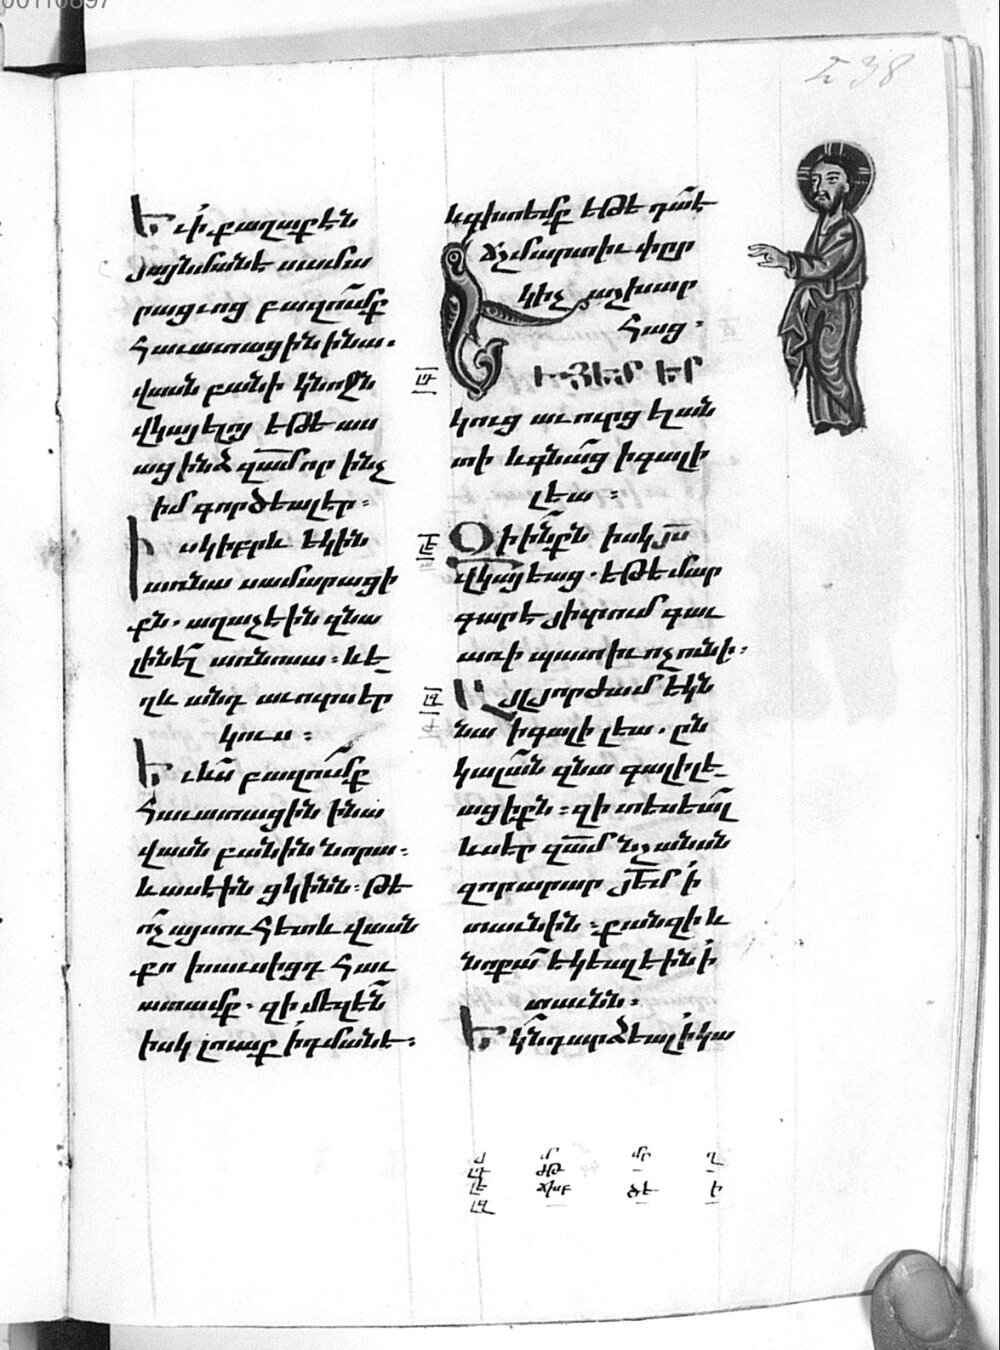 00110897
Եւ ՛ի քաղաքէն
յայնմանէ սամա
րացւոց բազո՜ւմք
հաւատացին ինա.
վասն բանի կնոջն
վկայելոյ եթե աս
աց ինձ զա՜մ որ ինչ
իմ գործեալ էր։
Իսկ իբրև եկին
առնա սամարացի
քն. աղաչէին զնա
լինե՜լ առնոսա։ և է
ղև անդ աւուրս եր
կուս։
Եւ ևս բազո՜ւմք
հաւատացին ինա
վասն բանին նորա։
և ասէին ցկինն։ թե
ո՜չ այսուհետև վասն
քո խաւսիցդ հաւ
ատամք. զի մեզէ՜ն
իսկ լուաք ՛իդմանե։
և գիտեմք եթե դա՜է
ճշմարտիւ փըր
կիչ աշխար
հաց։
Եւ յետ եր
կուց աւուրց ել ան
տի և գնա՜ց իգալի
լեա։
ԼԴ
Զի ի՜նքն իսկ յ՜ս
վկայեաց. եթե մար
գարէ յիւրում գաւ
առի պատիւ ոչ ունի։
ԼԵ
Այլ յորժամ եկն
նա իգալիլեա. ըն
կալա՜ն զնա գալիլէ
ացիքն։ զի տեսեա՜լ
և սէր զա՜մ նշանսն
զոր արար յե՜մ ՛ի
տաւնին։ քանզի և
նոքա՜ եկեալ էին ՛ի
տաւնն։
ԼԶ
Եկն դարձեալ ՛ի կա